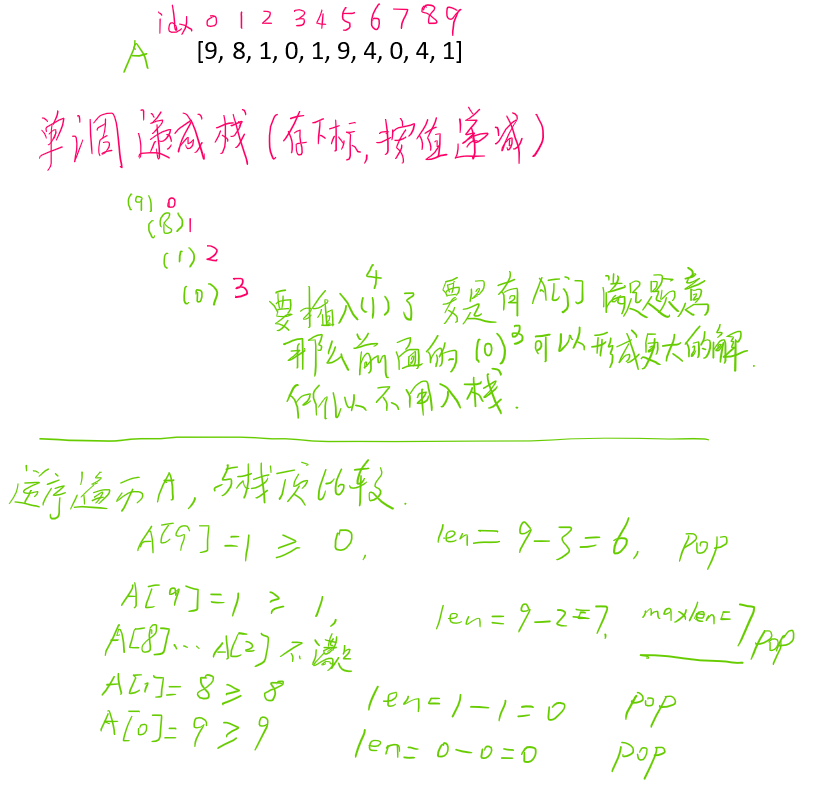 idx 0 1 2 3 4 5 6 7 8 9
A [9, 8, 1, 0, 1, 9, 4, 0, 4, 1]
单调递减栈(存下标,按值递减)
(9) 0
(8) 1
(1) 2
(0) 3
4
要插入(1)了 要是有A[j]满足题意
那么前面的(0)3可以形成更大的解.
所以不用入栈.
逆序遍历A,与栈顶比较.
A[9]=1 ≥ 0, len=9-3=6, pop
A[9]=1 ≥ 1, len=9-2=7, maxlen=7 pop
A[8]...A[2]不满足
A[1]=8≥8 len=1-1=0 pop
A[0]=9≥9 len=0-0=0 pop